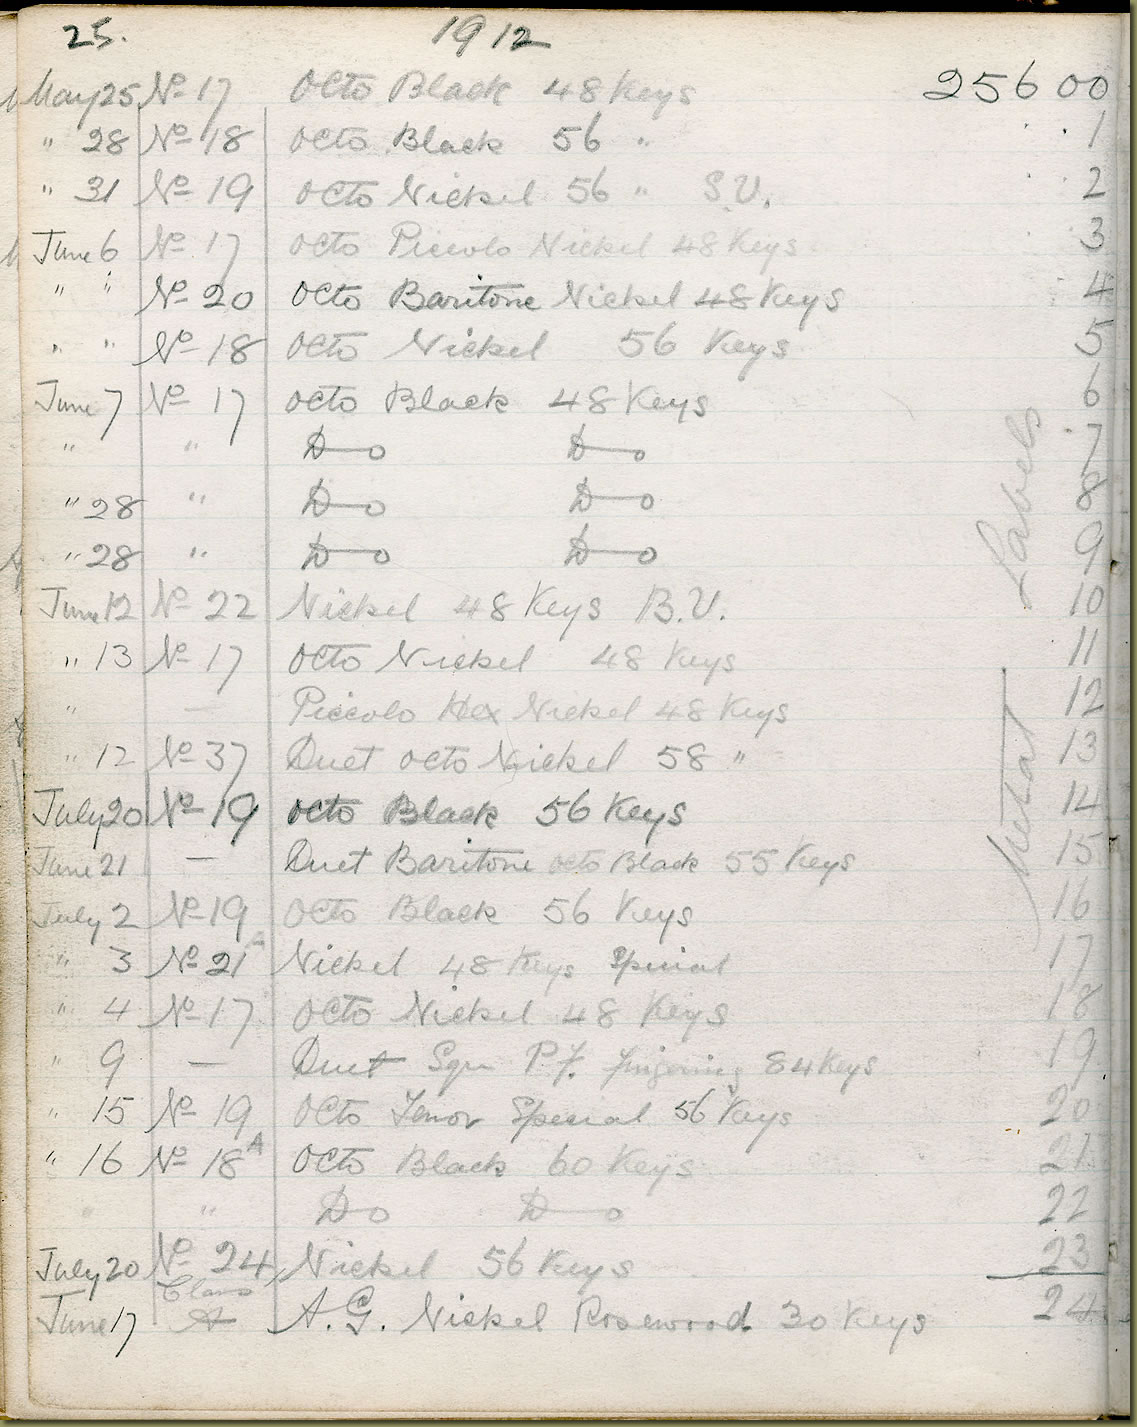 25. 1912
May 25 No 17 Octo Black 48 Keys 25600
" 28 No 18 Octo Black 56 " 1
" 31 No 19 Octo Nickel 56 " S.V. 2
June 6 No 17 Octo Piccolo Nickel 48 Keys 3
" " No 20 Octo Baritone Nickel 48 Keys 4
" " No 18 Octo Nickel 56 Keys 5
June 7 No 17 Octo Black 48 Keys 6
" " Do Do 7
" 28 " Do Do 8
" 28 " Do Do 9
Labels
June 12 No 22 Nickel 48 Keys B.V. 10
" 13 No 17 Octo Nickel 48 Keys 11
" — Piccolo Hex Nickel 48 Keys 12
" 12 No 37 Duet Octo Nickel 58 " 13
July 20 No 19 Octo Black 56 Keys 14
Metal
June 21 — Duet Baritone Octo Black 55 Keys 15
July 2 No 19 Octo Black 56 Keys 16
" 3 No 21A Nickel 48 Keys Special 17
" 4 No 17 Octo Nickel 48 Keys 18
" 9 — Duet Sqr P.F. fingering 84 Keys 19
" 15 No 19 Octo Tenor Special 56 Keys 20
" 16 No 18A Octo Black 60 Keys 21
" " Do Do 22
July 20 No 24 Nickel 56 Keys 23
June 17 Class A A.G. Nickel Rosewood 30 Keys 24